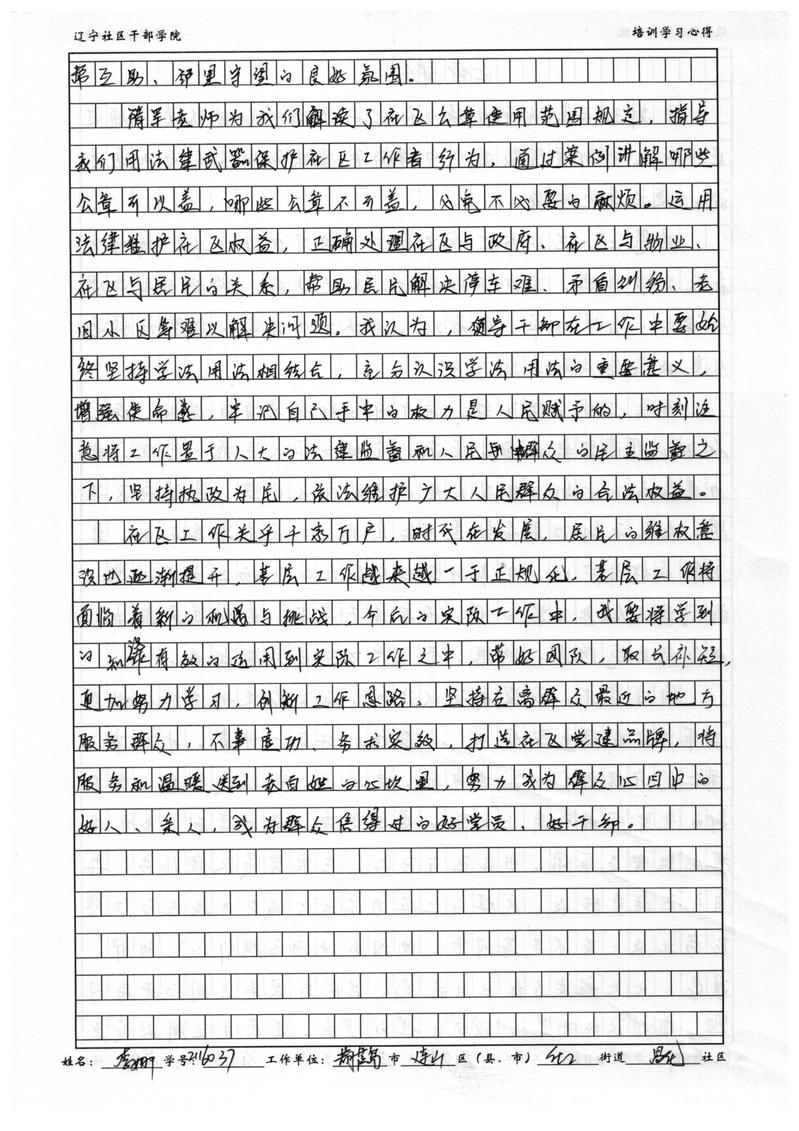 辽宁社区干部学院 培训学习心得
帮互助、邻里守望的良好氛围。
隋军老师为我们解读了社区公章使用范围规定，指导
我们用法律武器保护社区工作者行为，通过案例讲解哪些
公章可以盖，哪些公章不可盖，避免不必要的麻烦。运用
法律维护社区权益，正确处理社区与政府、社区与物业、
社区与居民的关系，帮助居民解决停车难、矛盾纠纷、老
旧小区等难以解决问题。我认为，领导干部在工作中要始
终坚持学法用法相结合，充分认识学法用法的重要意义，
增强使命感，牢记自己手中的权力是人民赋予的，时刻注
意将工作置于人大的法律监督和人民群众的民主监督之
下，坚持执政为民，依法维护广大人民群众的合法权益。
社区工作关乎千家万户，时代在发展，居民的维权意
识也逐渐提升，基层工作越来越趋于正规化，基层工作将
面临着新的机遇与挑战，今后的实际工作中，我要将学到
的知识有效的运用到实际工作之中，带好团队，取长补短，
更加努力学习，创新工作思路，坚持在离群众最近的地方
服务群众，不事虚功、务求实效，打造社区党建品牌，将
服务和温暖送到老百姓的心坎里，努力成为群众心目中的
好人、亲人，成为群众信得过的好党员、好干部。
姓名： 学号：2116037 工作单位： 市 连山 区（县、市） 化工 街道 社区